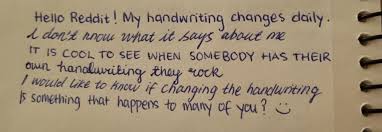 Hello Reddit! My handwriting changes daily.
I don't know what it says about me
IT IS COOL TO SEE WHEN SOMEBODY HAS THEIR
own handwriting they rock
I would like to know if changing the handwriting
Is something that happens to many of you? :)